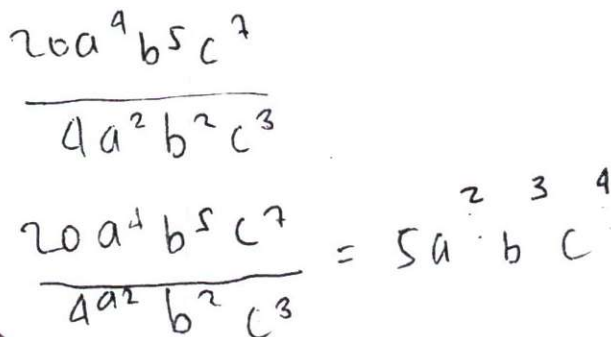 20a⁴b⁵c⁷
4a²b²c³
20a⁴b⁵c⁷ = 5a²·b³c⁴
4a²b²c³